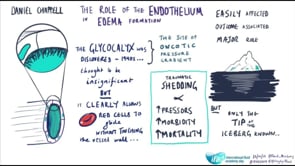 DANIEL CHAPPELL
THE ROLE OF THE ENDOTHELIUM
IN EDEMA FORMATION
THE GLYCOCALYX WAS
DISCOVERED - 1940s...
thought to be
insignificant
BUT
IT CLEARLY ALLOWS
RED CELLS TO
glide
WITHOUT TOUCHING
the vessel wall...
THE SITE OF
ONCOTIC
PRESSURE
GRADIENT
TRAUMATIC
SHEDDING
PRESSORS
MORBIDITY
MORTALITY
EASILY AFFECTED
OUTCOME ASSOCIATED
MAJOR ROLE
BUT
ONLY THE
TIP OF
ICEBERG KNOWN...